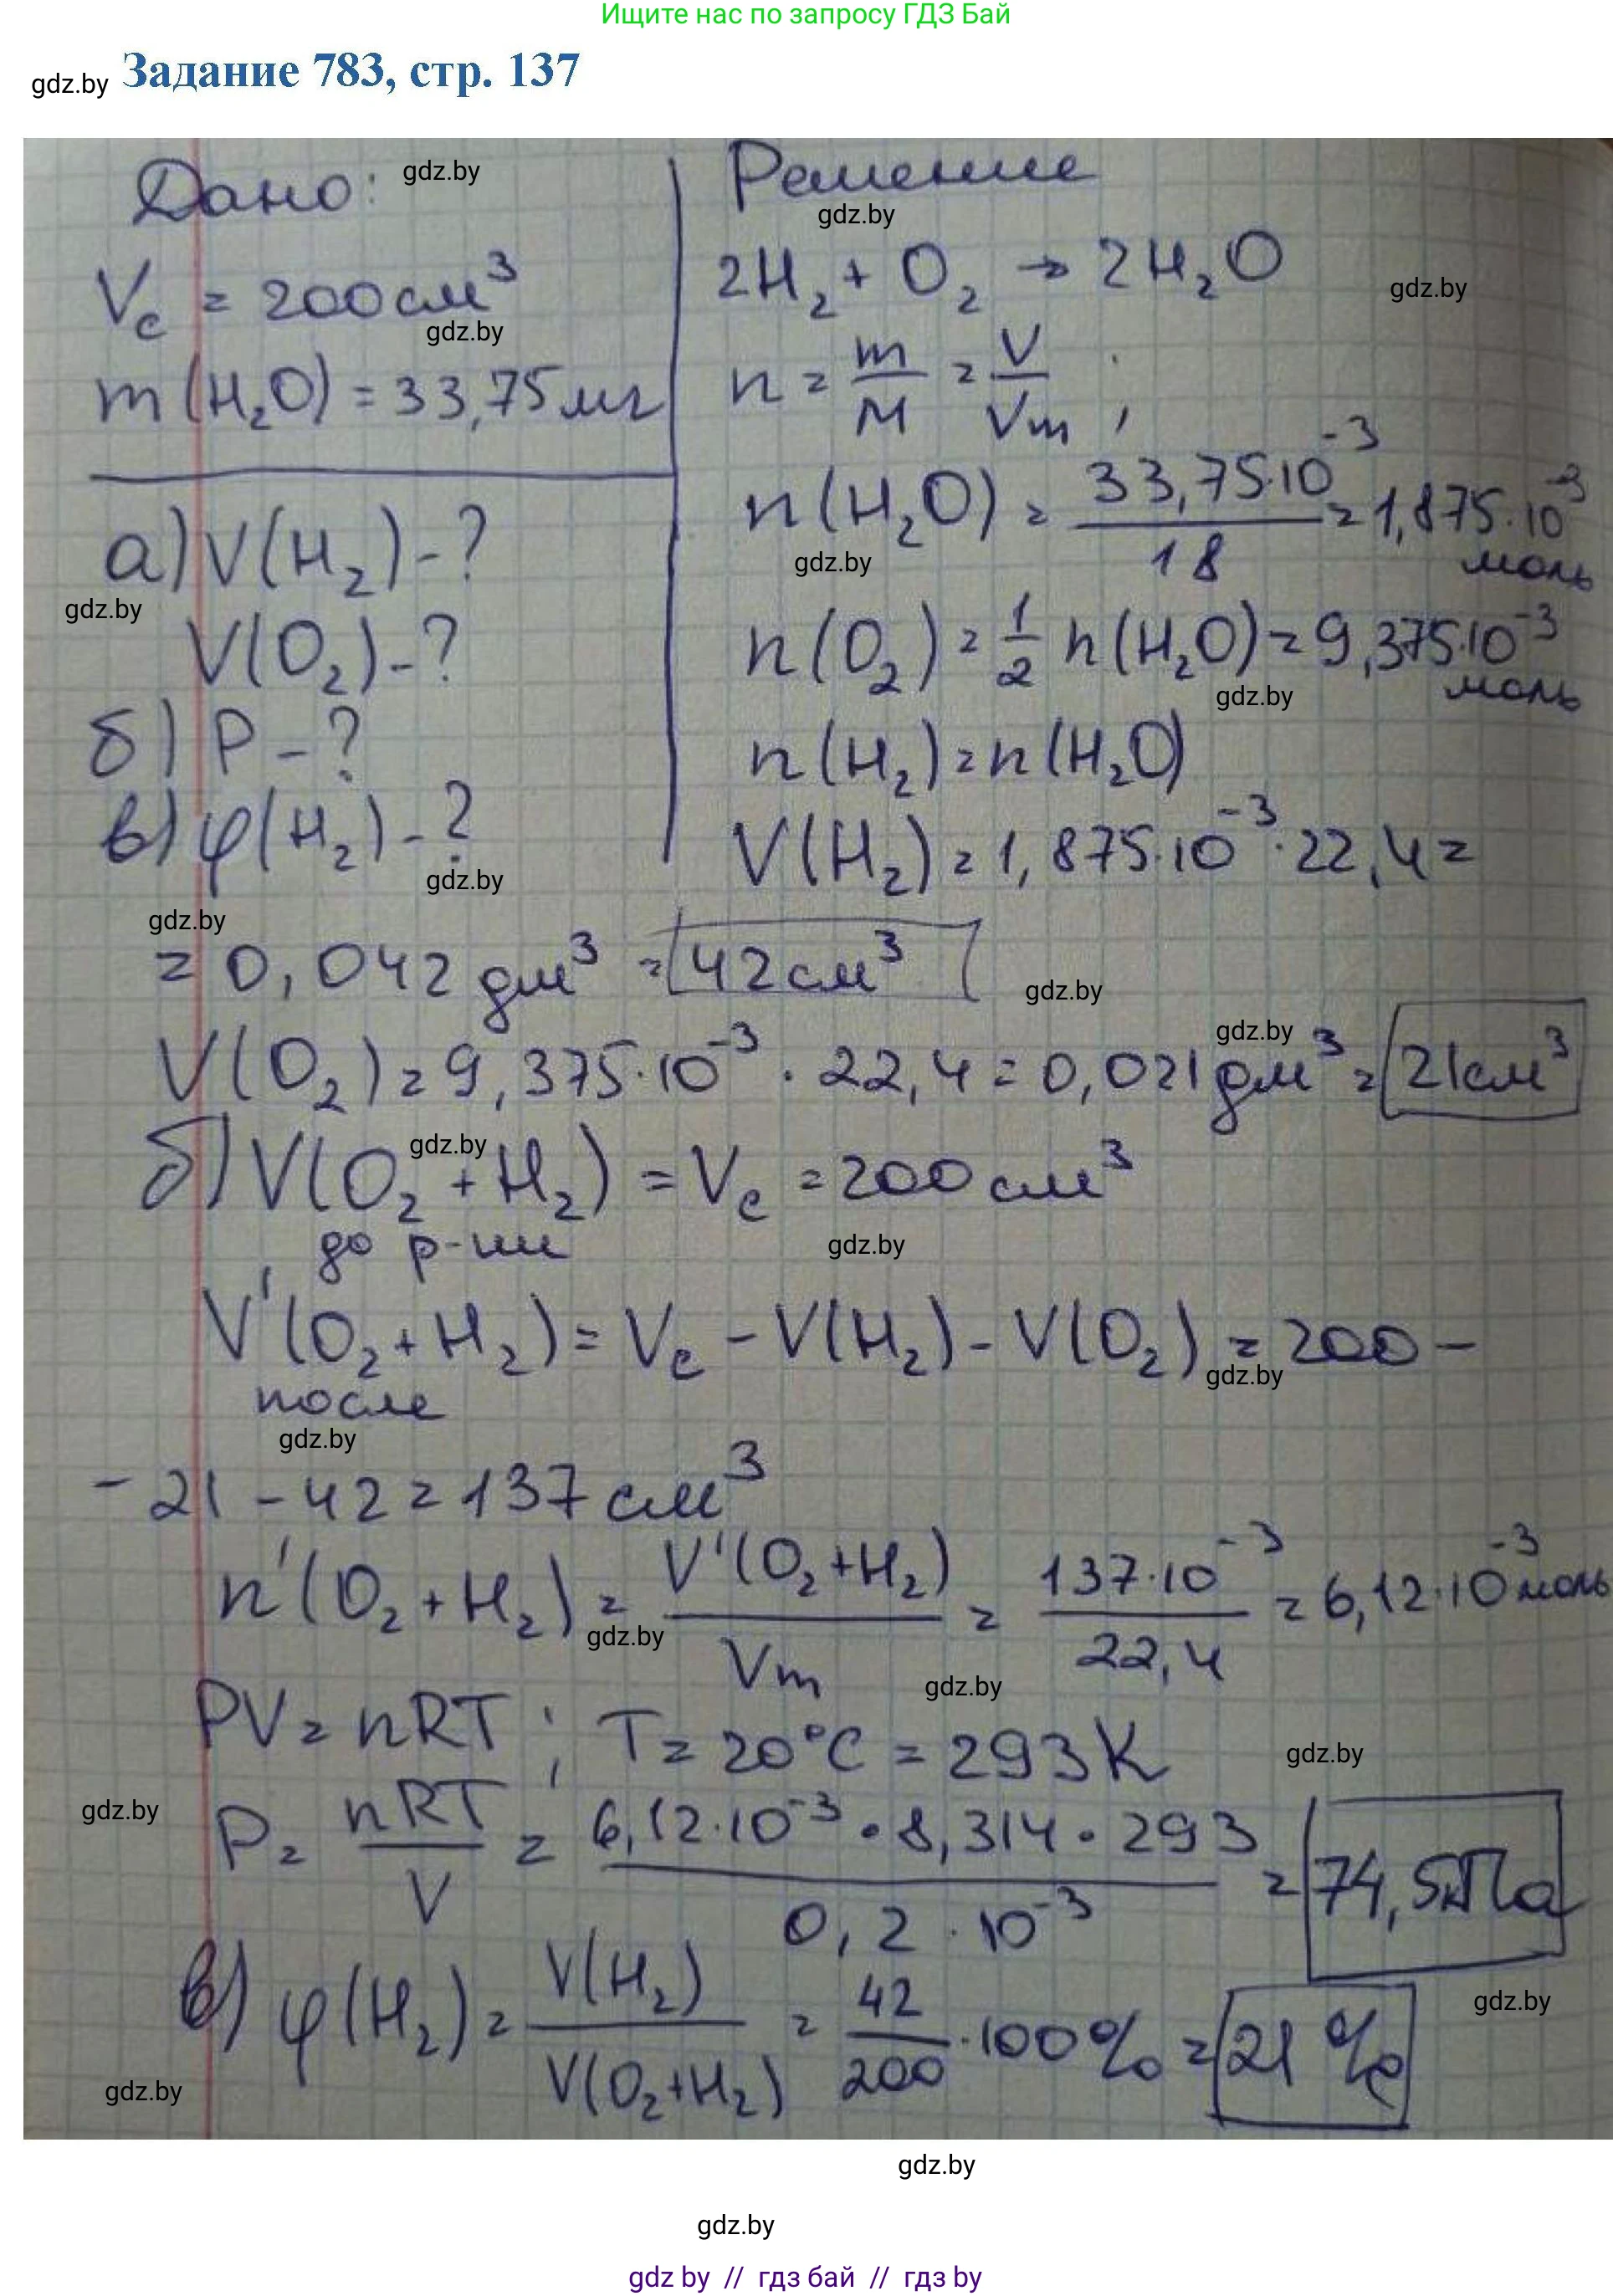 Ищите нас по запросу ГДЗ Бай
gdz.by Задание 783, стр. 137
Дано: gdz.by
Vс = 200 см³
gdz.by
m(H₂O) = 33,75 мг
а) V(H₂) - ?
gdz.by
V(O₂) - ?
б) P - ?
в) φ(H₂) - ?
gdz.by
gdz.by
Решение
gdz.by
2H₂ + O₂ → 2H₂O
gdz.by
n = m/M = V/Vm ;
n(H₂O) = 33,75·10⁻³/18 = 1,875·10⁻³ моль
gdz.by
n(O₂) = 1/2 n(H₂O) = 9,375·10⁻³ моль
gdz.by
n(H₂) = n(H₂O)
V(H₂) = 1,875·10⁻³·22,4 =
= 0,042 дм³ = 42 см³
gdz.by
gdz.by
V(O₂) = 9,375·10⁻³ · 22,4 = 0,021 дм³ = 21 см³
gdz.by
б) V(O₂ + H₂) = Vс = 200 см³
до р-ии
gdz.by
V'(O₂ + H₂) = Vс - V(H₂) - V(O₂) = 200 -
после
gdz.by
gdz.by
- 21 - 42 = 137 см³
n'(O₂ + H₂) = V'(O₂+H₂)/Vm = 137·10⁻³/22,4 = 6,12·10⁻³ моль
gdz.by
gdz.by
PV = nRT ; T = 20°C = 293 K
gdz.by
gdz.by
P = nRT/V = 6,12·10⁻³ · 8,314 · 293/0,2·10⁻³ = 74,5кПа
в) φ(H₂) = V(H₂)/V(O₂+H₂) = 42/200 ·100% = 21 %
gdz.by
gdz.by
gdz.by
gdz.by
gdz by // гдз бай // гдз by